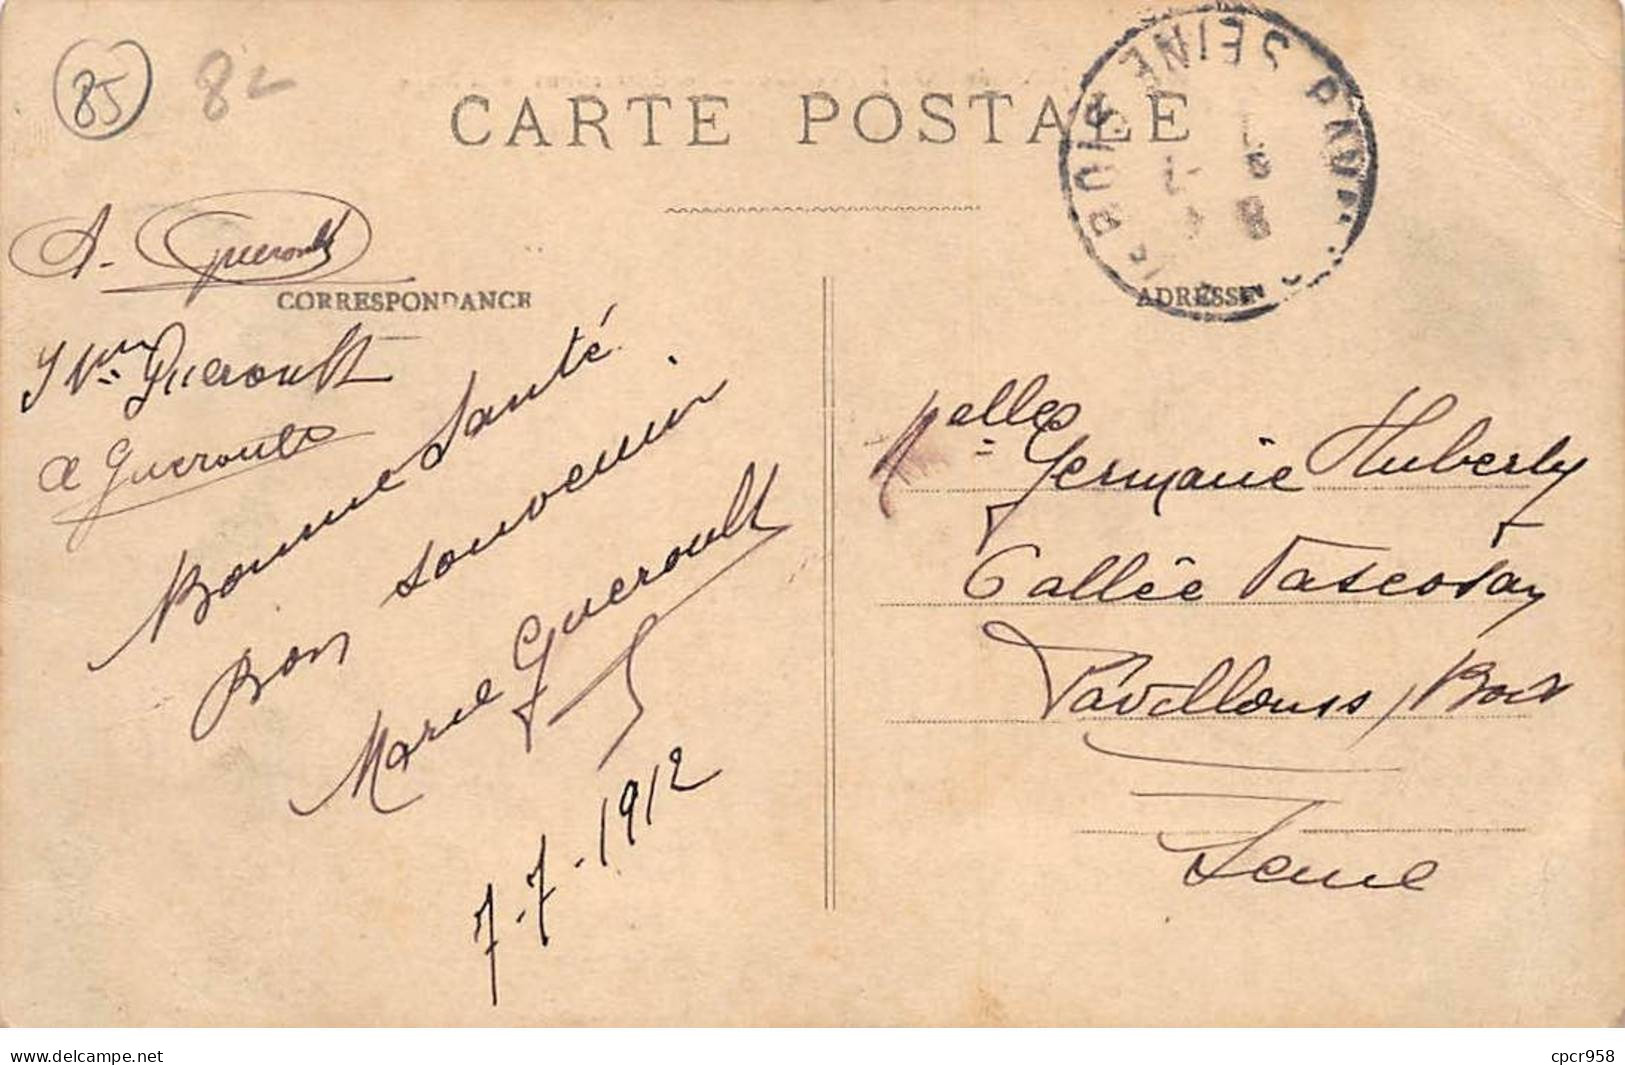 85 82
CARTE POSTALE
A. Gueroult
CORRESPONDANCE
Yvne Gueroult
a Gueroult
Bonne Santé
Bon souvenir
Marie Gueroult
7-7-1912
SEINE
BOIS
ADRESSE
Germaine Huberty
6 allée
Pavillons s/ Bois
Seine
www.delcampe.net
cpcr958